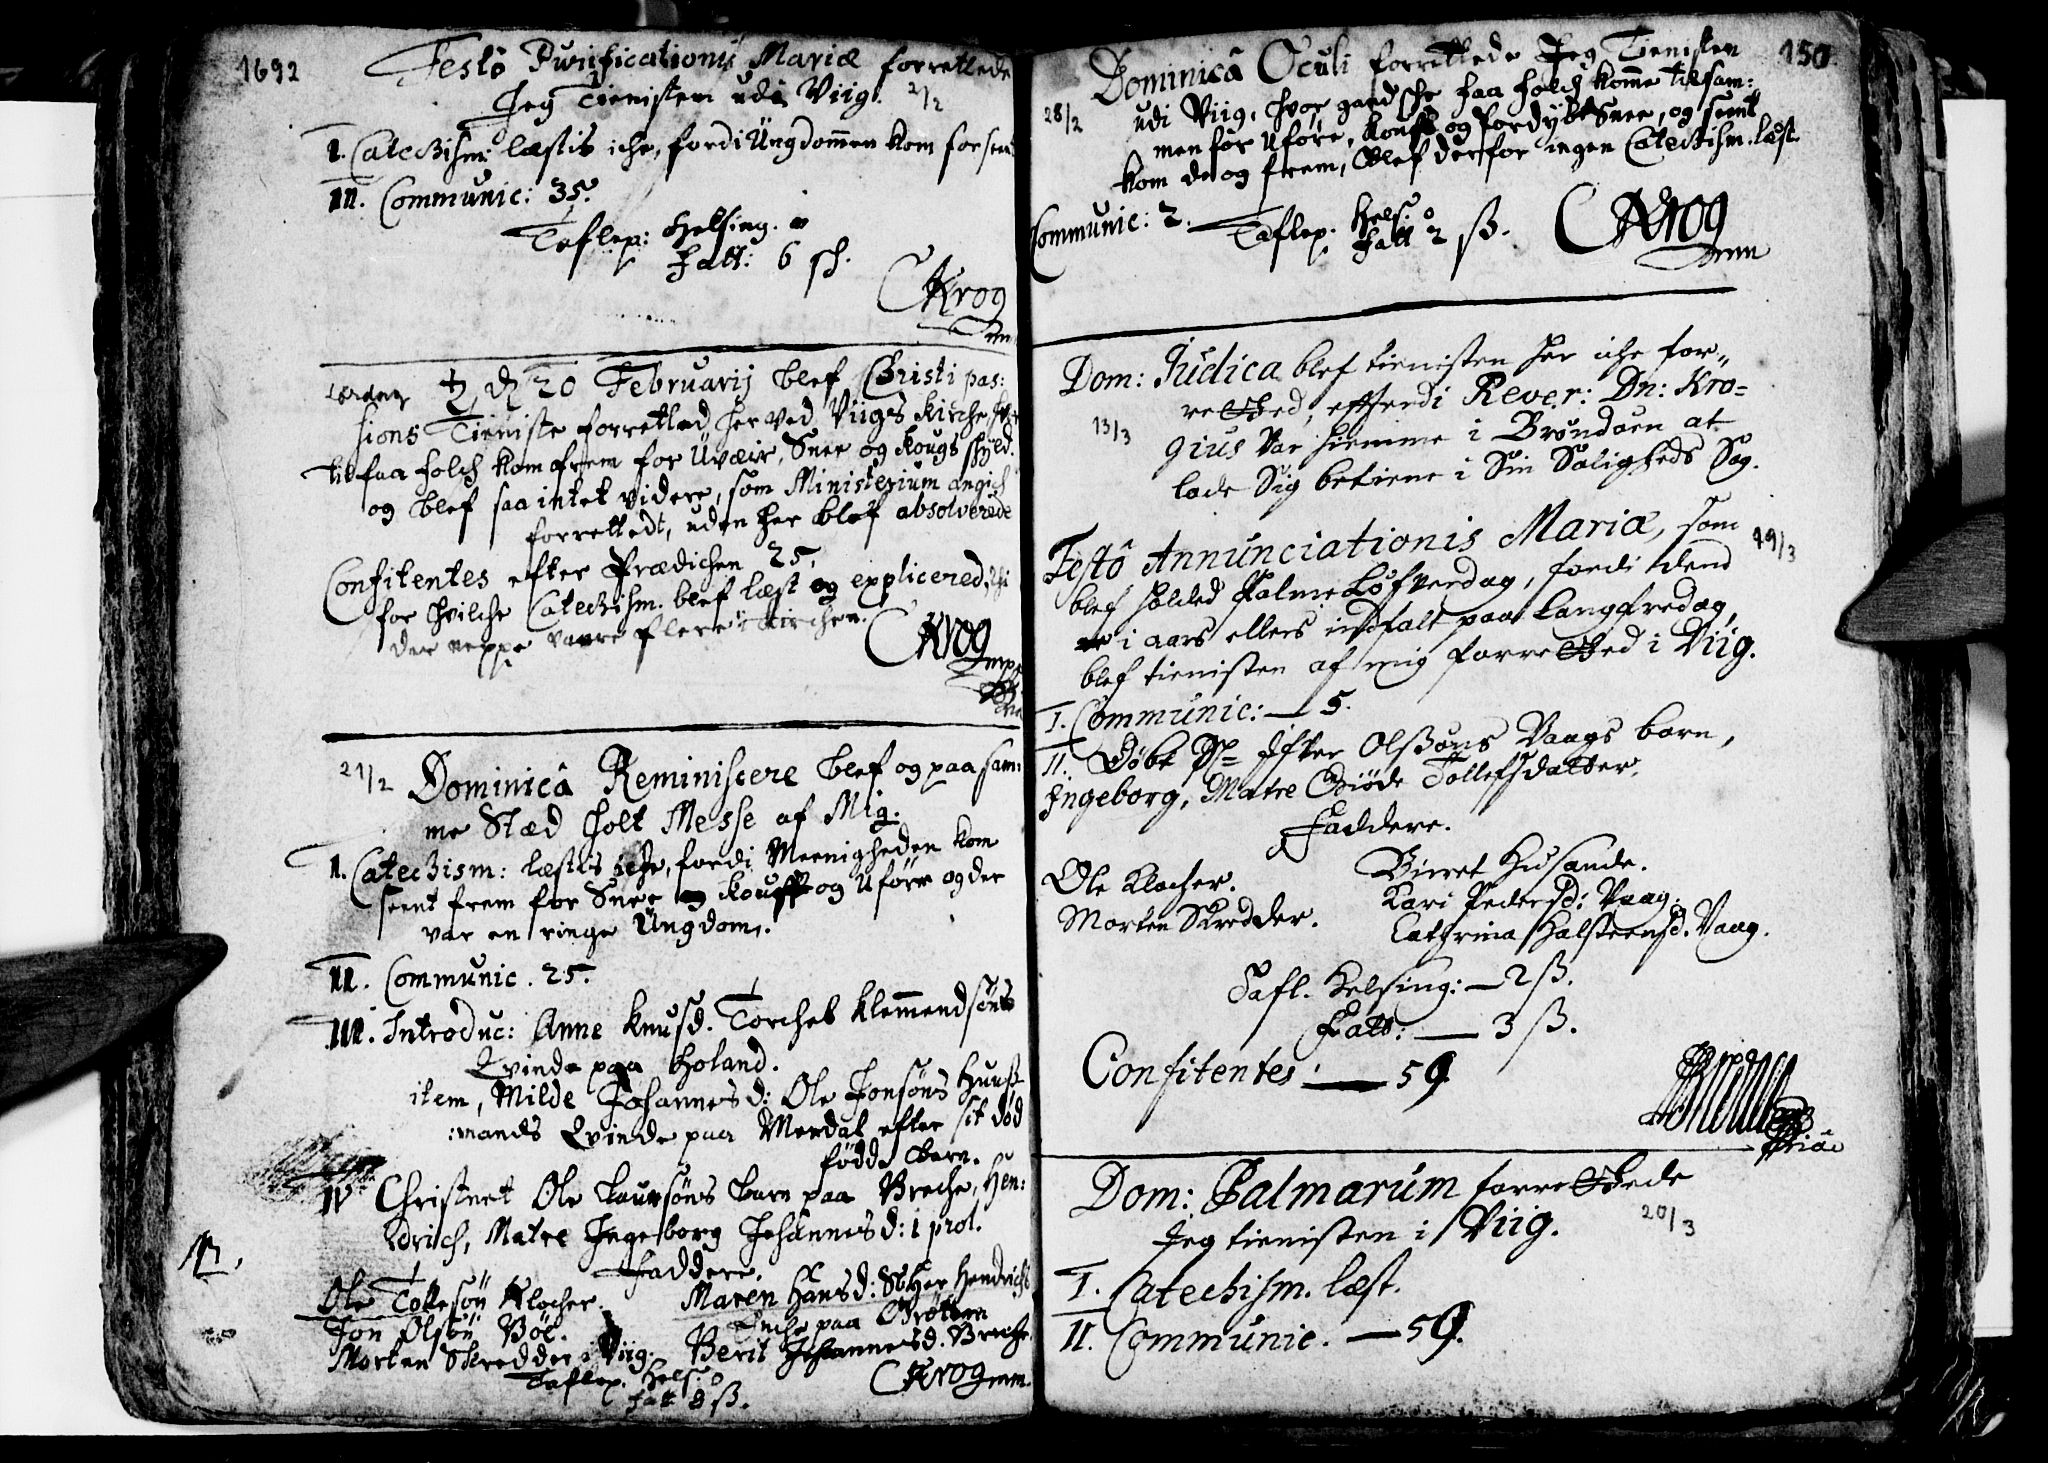 1692
Festô Purificationis Mariæ forrettede
Jeg Tienisten udi Viig. 2/2
I. Catechism: læstis iche, fordi Ungdommen kom for seent
II. Communic: 35.
Taflep: Helsing. 0
Fatt: 6 sch.
CKrog
mm
Lørdag ♄ d 20 Februarij blef Christi pas:
sions Tieniste forretted her ved Viigs Kirche
till faa folch kom frem for Uvæir, Snee og kougs skyld.
og blef saa intet videre, som Ministerium angich
forrettedt, uden her blef absolverede
Confitentes efter Prædichen 25,
for hvilche Catechism. blef læst og explicered,
der neppe vaare flere i Kirchen.
CKrog
mpp
21/2 Dominicâ Reminiscere blef og paa sam:
me Stæd holt Messe af Mig.
I. Catechism: læstis iche, fordi Meenigheden kom
seent frem for Snee og og Uføre og der
var en ringe Ungdom.
II. Communic. 25.
III. Introduc: Anne Knusd. Torchel Klemmendsøns
Qvinde paa Holand.
item, Milde Johannesd: Ole Jonsøns Huuß
:mands Qvinde paa Merdal efter sit død
fødde Barn.
IV Christnet Ole Laursøns barn paa Breche, Hen:
drich, Matre Ingeborg Johannesd: i prot.
Faddere.
Ole Tollesøn Klocher. Maren Hansd: Sl Her Hendrichs
Enche paa Brøtten
Jon Olsøn Böl.
Morten Skredder i Viig. Berit Johannesd. Breche.
Taflep. Hels: 0
Fatt 8 ß.
CKrog mm.
150
Dominicâ Oculi forrettede Jeg Tienisten
28/2 udi Viig, hvor gandsche faa folch komme tilsam:
men for Uføre, og fordybt Snee, og seent
kom de og frem, blef derfor ingen Catechism. læst.
Communic: 2. Taflep. Hels: 0
Fatt 2 ß.
CKrog
mm
Dom: Judica blef tienisten her iche for„
retted, efterdi Rever: Dn: Kro=
13/3 gius var hiemme i Brøndøen at
lade Sig betiene i Sin Saligheds Sag.
Festô Annunciationis Mariæ, som 19/3
blef holded Palme Løfverdag, fordi dend
i aars ellers indfalt paa Langfredag,
blef tienisten af mig forretted i Viig.
I. Communic: — 5.
II. Döbt Olßøns Vaags barn,
Ingeborg, Matre Tollefsdatter.
Faddere.
Ole Klocher. Birret Husande.
Morten Skredder. Kari Pedersd: Vaag.
Cathrina Halsteensd. Vaag.
Tafl. Helsing: — 2 ß.
Fatt: — 3 ß.
Confitentes: — 59
Dom: Palmarum forrettede
20/3
Jeg tienisten i Viig.
I. Catechism. læst.
II. Communic. — 59.